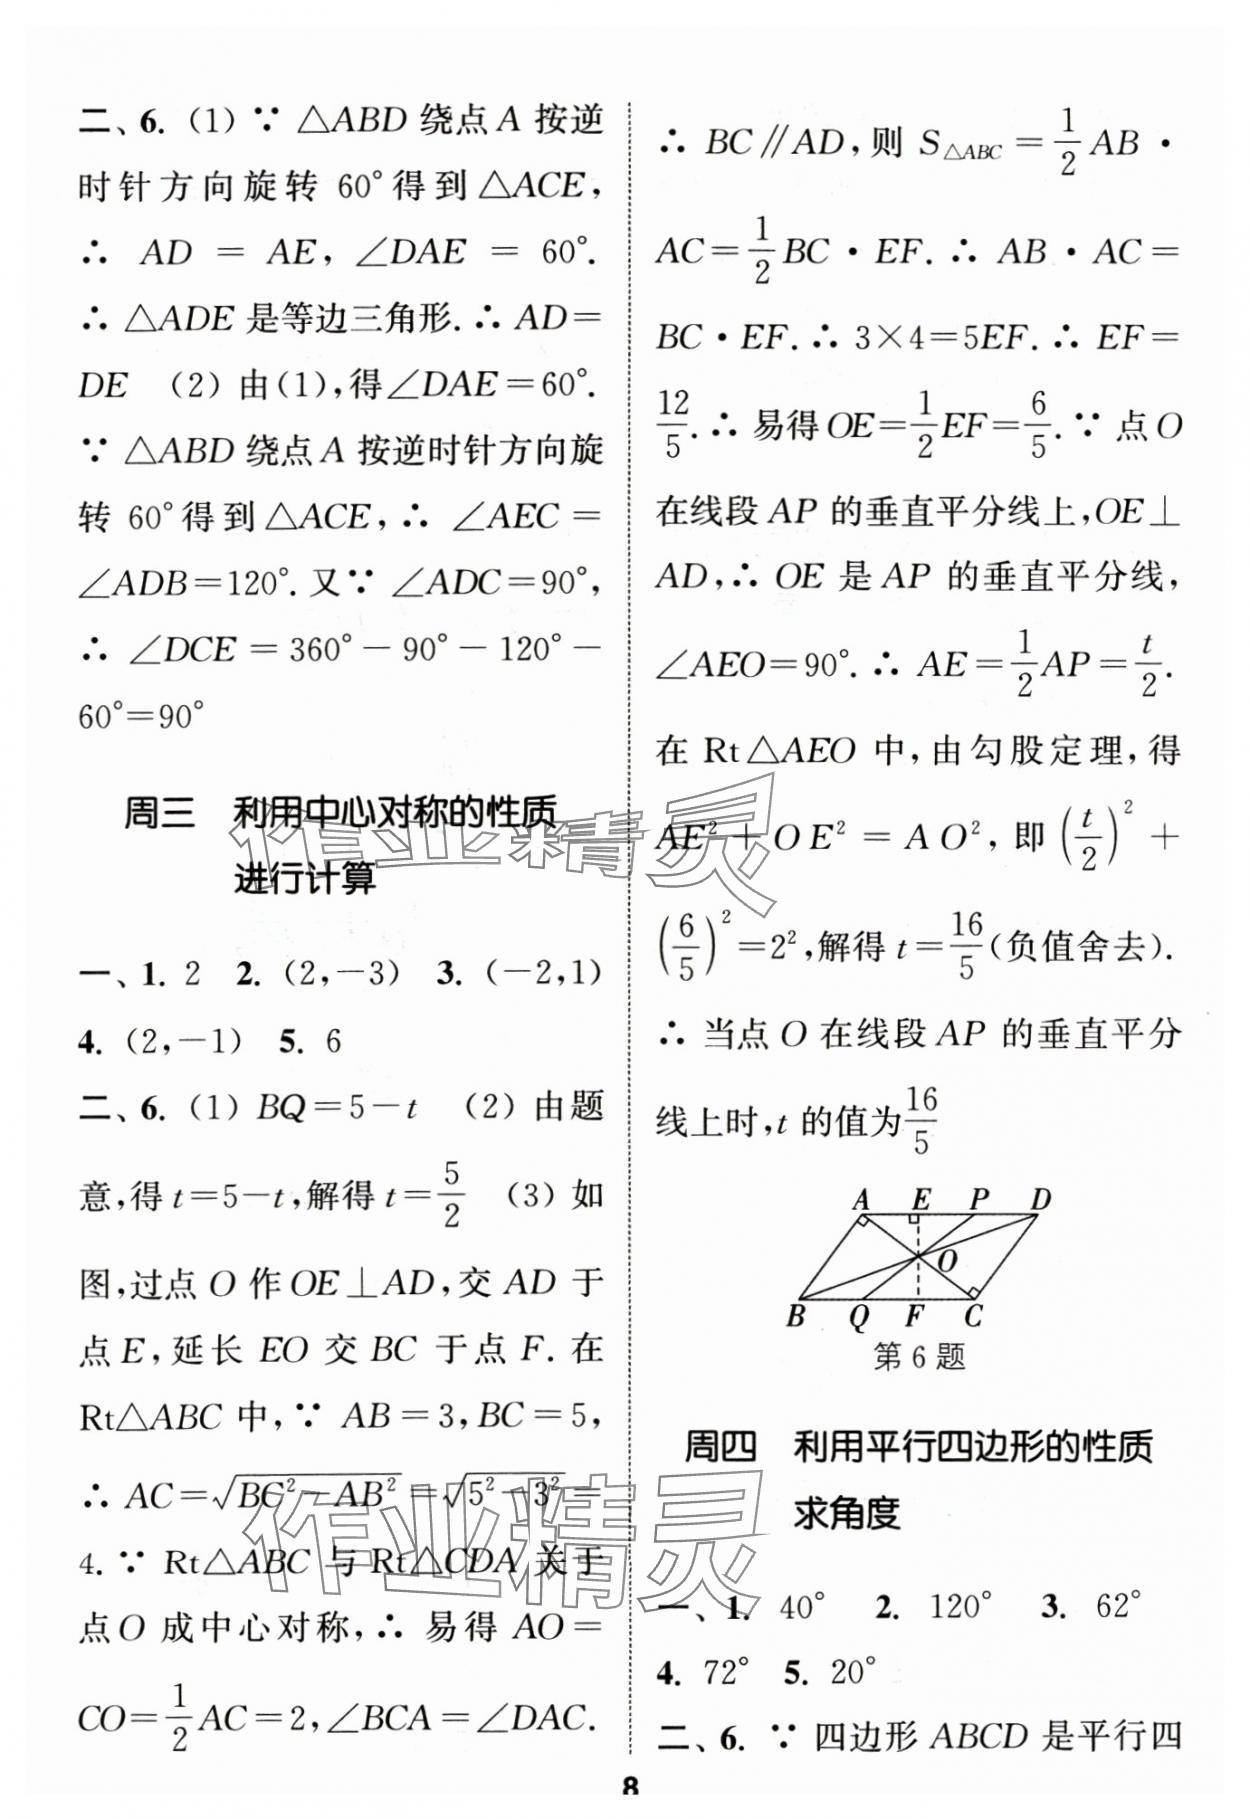 二、6. (1) ∵ △ABD 绕点 A 按逆
时针方向旋转 60°得到△ACE,
∴ AD = AE, ∠DAE = 60°.
∴ △ADE 是等边三角形. ∴ AD=
DE (2) 由(1),得∠DAE=60°.
∵ △ABD 绕点 A 按逆时针方向旋
转 60°得到△ACE, ∴ ∠AEC =
∠ADB=120°. 又∵ ∠ADC=90°,
∴ ∠DCE = 360° - 90° - 120° -
60°=90°
周三 利用中心对称的性质
进行计算
一、1. 2 2. (2,-3) 3. (-2,1)
4. (2,-1) 5. 6
二、6. (1) BQ=5-t (2) 由题
意,得 t=5-t,解得 t=5/2 (3) 如
图,过点 O 作 OE⊥AD,交 AD 于
点 E,延长 EO 交 BC 于点 F. 在
Rt△ABC 中, ∵ AB=3, BC=5,
∴ AC=√(BC²-AB²)=√(5²-3²)=
4. ∵ Rt△ABC 与 Rt△CDA 关于
点 O 成中心对称, ∴ 易得 AO=
CO=1/2AC=2, ∠BCA=∠DAC.
∴ BC∥AD,则 S△ABC=1/2AB·
AC=1/2BC·EF. ∴ AB·AC=
BC·EF. ∴ 3×4=5EF. ∴ EF=
12/5. ∴ 易得 OE=1/2EF=6/5. ∵ 点 O
在线段 AP 的垂直平分线上,OE⊥
AD, ∴ OE 是 AP 的垂直平分线,
∠AEO=90°. ∴ AE=1/2AP=t/2.
在 Rt△AEO 中,由勾股定理,得
AE²+OE²=AO²,即(t/2)²+
(6/5)²=2²,解得 t=16/5(负值舍去).
∴ 当点 O 在线段 AP 的垂直平分
线上时,t 的值为16/5
A E P D
O
B Q F C
第 6 题
周四 利用平行四边形的性质
求角度
一、1. 40° 2. 120° 3. 62°
4. 72° 5. 20°
二、6. ∵ 四边形 ABCD 是平行四
8
作业精灵
作业精灵